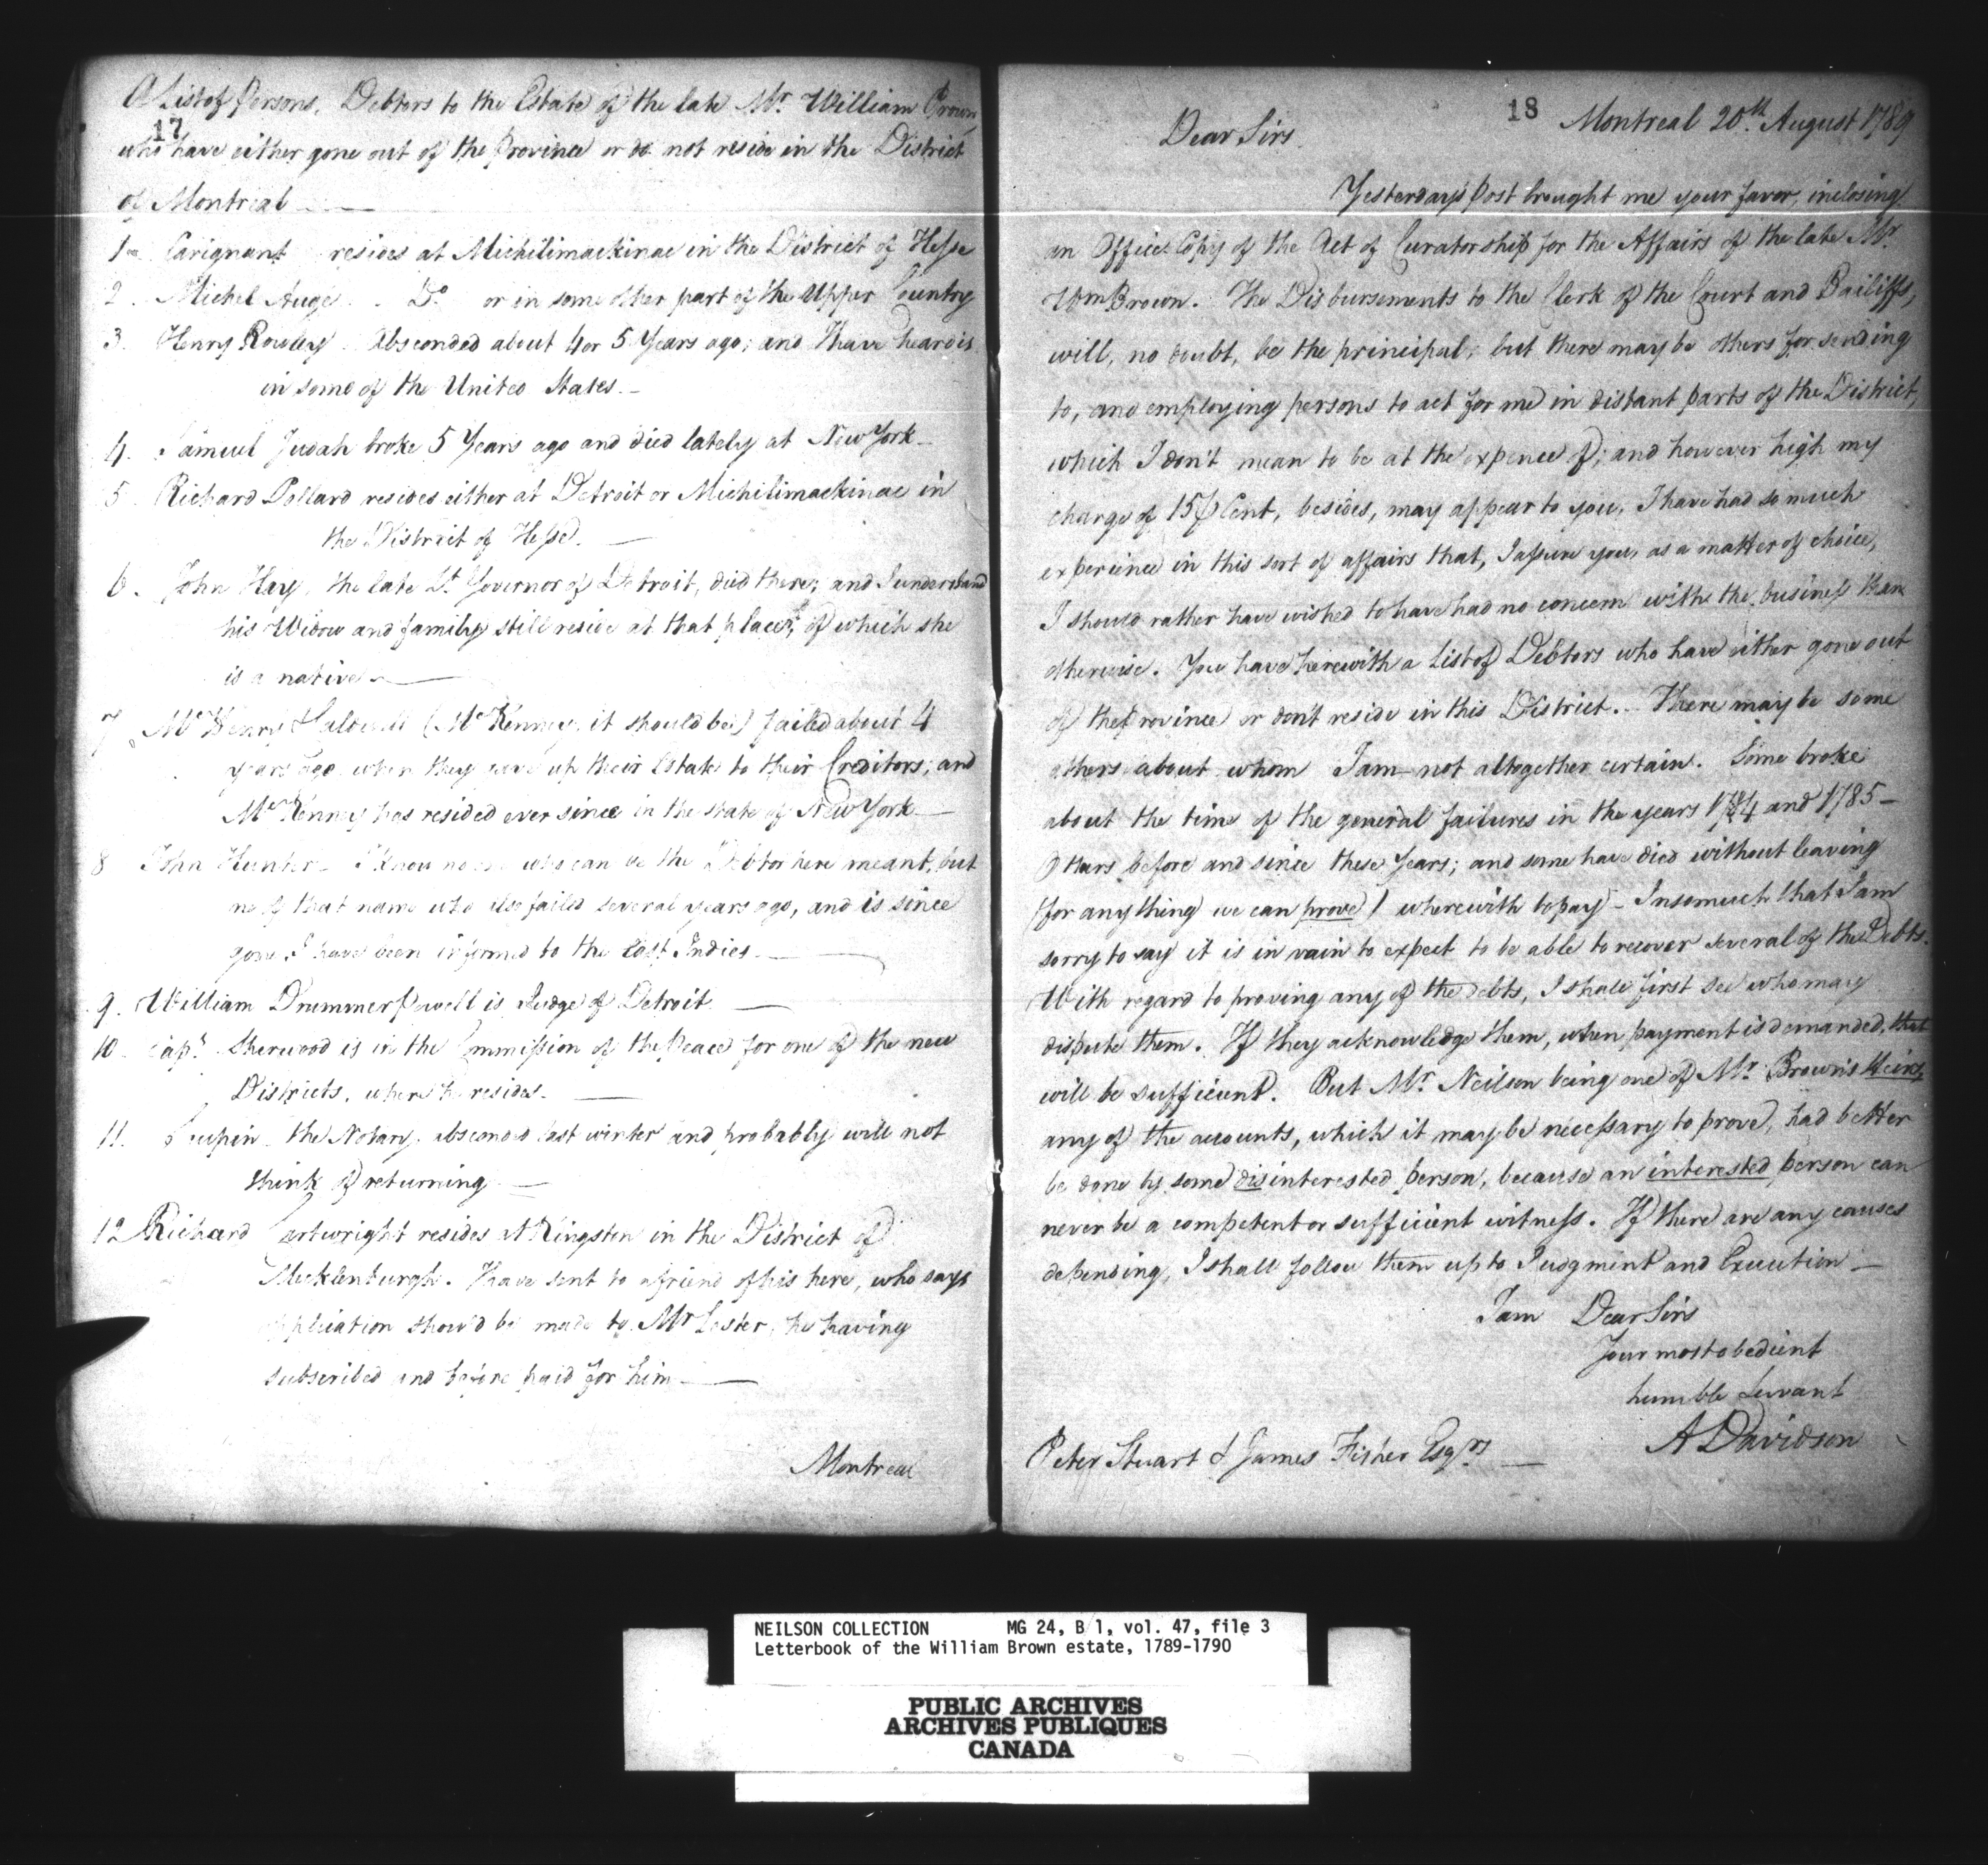 A List of Persons, Debtors to the Estate of the late Mr. William Brown
17
who have either gone out of the Province or do not reside in the District
of Montreal
1. Carignant resides at Michilimackinac in the District of Hesse
2. Michel Augé Do. or in some other part of the Upper Country
3. Henry Rowley Absconded about 4 or 5 Years ago; and I have heard is
in some of the United States.
4. Samuel Judah broke 5 Years ago and died lately at New York
5. Richard Pollard resides either at Detroit or Michilimackinac in
the District of Hesse.
6. John Hay, the late Lt. Governor of Detroit, died there; and I understand
his Widow and family still reside at that place, of which she
is a native
7. McHenry & Caldwell (McKenney, it should be) failed about 4
years ago when they gave up their Estate to their Creditors; and
McKenney has resided ever since in the State of New York
8 John Hunter I know no one who can be the Debtor here meant, but
one of that name who also failed several years ago, and is since
gone, I have been informed to the East Indies.
9. William Drummer Powell is Judge of Detroit
10 Capt. Sherwood is in the Commission of the Peace for one of the new
Districts, where he resides.
11. the Notary, absconded last winter and probably will not
think of returning
12 Richard Cartwright resides at Kingston in the District of
Mecklenburgh. I have sent to a friend of his here, who says
application should be made to Mr Lester, he having
subscribed and before paid for him
Montreal
18
Montreal 20th. August 1789
Dear Sirs.
Yesterday's Post brought me your favor, inclosing
an Office Copy of the Act of Curatorship for the Affairs of the late Mr.
Wm Brown. The Disbursements to the Clerk of the Court and Bailiffs,
will, no doubt, be the principal; but there may be others for sending
to, and employing persons to act for me in distant parts of the District,
which I don't mean to be at the expence of; and however high my
charge of 15 p Cent, besides, may appear to you, I have had so much
experience in this sort of affairs that, I assure you, as a matter of choice,
I should rather have wished to have had no concern with the business than
otherwise. You have herewith a List of Debtors who have either gone out
of the Province or don't reside in this District. There may be some
others about whom I am not altogether certain. Some broke
about the time of the general failures in the years 1784 and 1785
Others before and since these Years; and some have died without leaving
(for any thing we can prove) wherewith to pay. Insomuch that I am
sorry to say it is in vain to expect to be able to recover several of the Debts.
With regard to proving any of the debts, I shall first see who may
dispute them. If they acknowledge them, when payment is demanded, that
will be sufficient. But Mr. Neilson being one of Mr. Brown's Heirs,
any of the accounts, which it may be necessary to prove, had better
be done by some disinterested person, because an interested person can
never be a competent or sufficient witness. If there are any causes
depending, I shall follow them up to Judgment and Execution
I am Dear Sirs
Your most obedient
humble Servant
A Davidson
Peter Stuart & James Fisher Esqrs
NEILSON COLLECTION MG 24, B 1, vol. 47, file 3
Letterbook of the William Brown estate, 1789-1790
PUBLIC ARCHIVES
ARCHIVES PUBLIQUES
CANADA